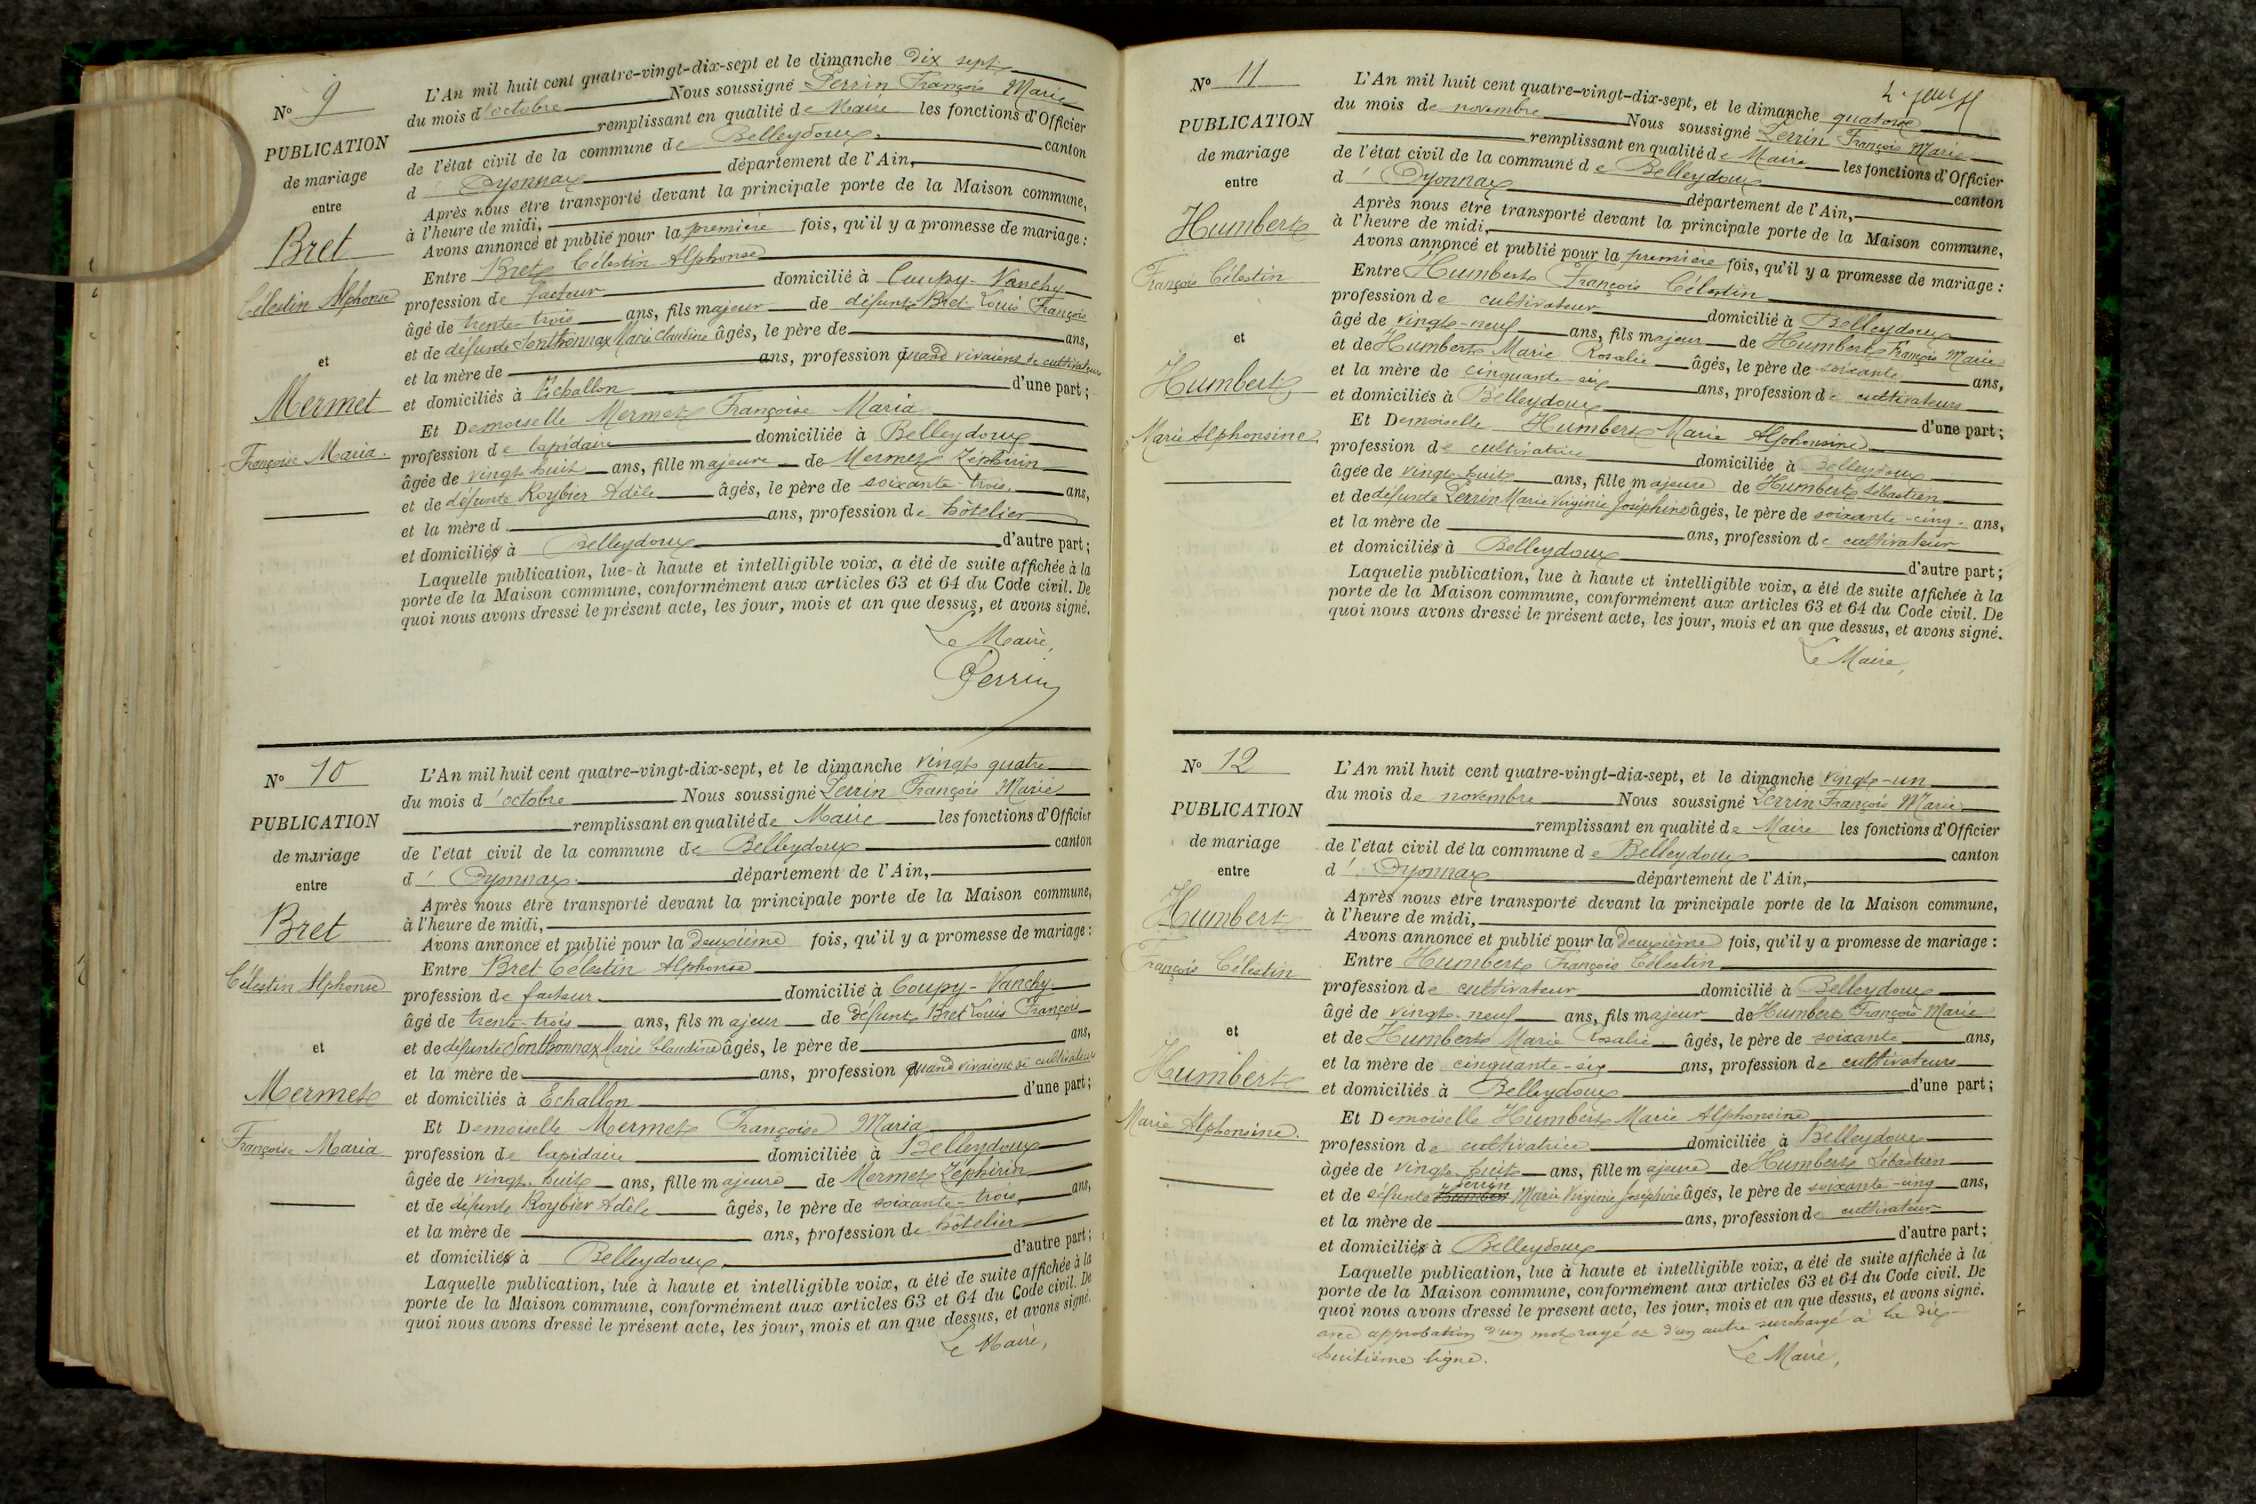 N° 9
PUBLICATION
de mariage
entre
Bret
Célestin Alphonse
et
Mermet
Françoise Maria.
L'An mil huit cent quatre-vingt-dix-sept et le dimanche dix sept
du mois d'octobre Nous soussigné Perrin François Marie
remplissant en qualité de Maire les fonctions d'Officier
de l'état civil de la commune de Belleydoux. canton
d'Oyonnax département de l'Ain,
Après nous être transporté devant la principale porte de la Maison commune,
à l'heure de midi,
Avons annoncé et publié pour la première fois, qu'il y a promesse de mariage :
Entre Bret Célestin Alphonse
profession de facteur domicilié à Coupy-Vanchy
âgé de trente-trois ans, fils majeur de défunt Bret Louis François
et de défunte Sonthonnax Marie Claudine âgés, le père de ans,
et la mère de ans, profession quand vivaient de cultivateurs
et domiciliés à Echallon d'une part ;
Et Demoiselle Mermet Françoise Maria
profession de lapidaire domiciliée à Belleydoux
âgée de vingt huit ans, fille majeure de Mermet Zéphirin
et de défunte Roybier Adèle âgés, le père de soixante-trois ans,
et la mère d ans, profession de hôtelier
et domiciliés à Belleydoux d'autre part ;
Laquelle publication, lue à haute et intelligible voix, a été de suite affichée à la
porte de la Maison commune, conformément aux articles 63 et 64 du Code civil. De
quoi nous avons dressé le présent acte, les jour, mois et an que dessus, et avons signé.
Le Maire,
Perrin
N° 10
PUBLICATION
de mariage
entre
Bret
Célestin Alphonse
et
Mermet
Françoise Maria
L'An mil huit cent quatre-vingt-dix-sept, et le dimanche vingt quatre
du mois d'octobre Nous soussigné Perrin François Marie
remplissant en qualité de Maire les fonctions d'Officier
de l'état civil de la commune de Belleydoux canton
d'Oyonnax département de l'Ain,
Après nous être transporté devant la principale porte de la Maison commune,
à l'heure de midi,
Avons annoncé et publié pour la deuxième fois, qu'il y a promesse de mariage :
Entre Bret Célestin Alphonse
profession de facteur domicilié à Coupy-Vanchy
âgé de trente-trois ans, fils majeur de défunt Bret Louis François
et de défunte Sonthonnax Marie Claudine âgés, le père de ans,
et la mère de ans, profession quand vivaient de cultivateurs
et domiciliés à Echallon d'une part ;
Et Demoiselle Mermet Françoise Maria
profession de lapidaire domiciliée à Belleydoux
âgée de vingt-huit ans, fille majeure de Mermet Zéphirin
et de défunte Roybier Adèle âgés, le père de soixante-trois ans,
et la mère de ans, profession de hôtelier
et domiciliés à Belleydoux d'autre part ;
Laquelle publication, lue à haute et intelligible voix, a été de suite affichée à la
porte de la Maison commune, conformément aux articles 63 et 64 du Code civil. De
quoi nous avons dressé le présent acte, les jour, mois et an que dessus, et avons signé.
Le Maire,
N° 11
PUBLICATION
de mariage
entre
Humbert
François Célestin
et
Humbert
Marie Alphonsine
L'An mil huit cent quatre-vingt-dix-sept, et le dimanche quatorze
du mois de novembre Nous soussigné Perrin François Marie
remplissant en qualité de Maire les fonctions d'Officier
de l'état civil de la commune de Belleydoux canton
d'Oyonnax département de l'Ain,
Après nous être transporté devant la principale porte de la Maison commune,
à l'heure de midi,
Avons annoncé et publié pour la première fois, qu'il y a promesse de mariage :
Entre Humbert François Célestin
profession de cultivateur domicilié à Belleydoux
âgé de vingt-neuf ans, fils majeur de Humbert François Marie
et de Humbert Marie Rosalie âgés, le père de soixante ans,
et la mère de cinquante-six ans, profession de cultivateurs
et domiciliés à Belleydoux d'une part ;
Et Demoiselle Humbert Marie Alphonsine
profession de cultivatrice domiciliée à Belleydoux
âgée de vingt-huit ans, fille majeure de Humbert Sébastien
et de défunte Perrin Marie Virginie Joséphine âgés, le père de soixante-cinq ans,
et la mère de ans, profession de cultivateur
et domiciliés à Belleydoux d'autre part ;
Laquelle publication, lue à haute et intelligible voix, a été de suite affichée à la
porte de la Maison commune, conformément aux articles 63 et 64 du Code civil. De
quoi nous avons dressé le présent acte, les jour, mois et an que dessus, et avons signé.
Le Maire,
N° 12
PUBLICATION
de mariage
entre
Humbert
François Célestin
et
Humbert
Marie Alphonsine.
L'An mil huit cent quatre-vingt-dia-sept, et le dimanche vingt-un
du mois de novembre Nous soussigné Perrin François Marie
remplissant en qualité de Maire les fonctions d'Officier
de l'état civil de la commune de Belleydoux canton
d'Oyonnax département de l'Ain,
Après nous être transporté devant la principale porte de la Maison commune,
à l'heure de midi,
Avons annoncé et publié pour la deuxième fois, qu'il y a promesse de mariage :
Entre Humbert François Célestin
profession de cultivateur domicilié à Belleydoux
âgé de vingt-neuf ans, fils majeur de Humbert François Marie
et de Humbert Marie Rosalie âgés, le père de soixante ans,
et la mère de cinquante-six ans, profession de cultivateurs
et domiciliés à Belleydoux d'une part ;
Et Demoiselle Humbert Marie Alphonsine
profession de cultivatrice domiciliée à Belleydoux
âgée de vingt-huit ans, fille majeure de Humbert Sébastien
et de défunte Perrin Marie Virginie Joséphine âgés, le père de soixante-cinq ans,
et la mère de ans, profession de cultivateur
et domiciliés à Belleydoux d'autre part ;
Laquelle publication, lue à haute et intelligible voix, a été de suite affichée à la
porte de la Maison commune, conformément aux articles 63 et 64 du Code civil. De
quoi nous avons dressé le présent acte, les jour, mois et an que dessus, et avons signé.
avec approbation d'un mot rayé et d'un autre surchargé à la dix-
huitième ligne.
Le Maire,